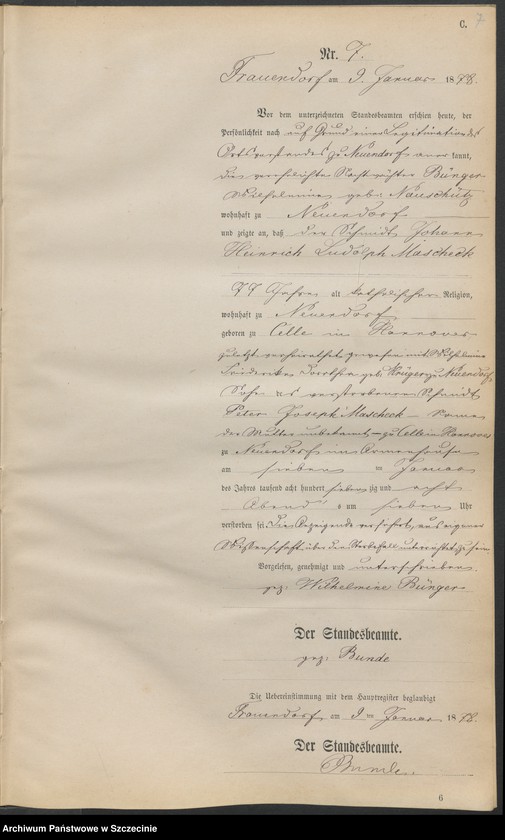 C.
7
Nr. 7.
Frauendorf am 9. Januar 1878.
Vor dem unterzeichneten Standesbeamten erschien heute, der
Persönlichkeit nach auf Grund einer Legitimation des
Ortsvorstandes zu Neuendorf anerkannt,
die verehelichte Nachtwächter Bünger
Wilhelmine geb. Nauschütz
wohnhaft zu Neuendorf
und zeigte an, daß der Schmidt Johann
Heinrich Ludolph Mascheck
77 Jahre alt katholischer Religion,
wohnhaft zu Neuendorf
geboren zu Celle in Hannover
zuletzt verheirathet gewesen mit Wilhelmine
Friederike Dorothea geb. Krüger zu Neuendorf
Sohn des verstorbenen Schmidt
Peter Joseph Mascheck – Name
der Mutter unbekannt – zu Celle in Hannover
zu Neuendorf im Armenhause
am sieben ten Januar
des Jahres tausend acht hundert siebenzig und acht
Abends um sieben Uhr
verstorben sei. Die Anzeigende versichert, aus eigener
Wissenschaft über den Sterbefall unterrichtet zu sein
Vorgelesen, genehmigt und unterschrieben.
gez: Wilhelmine Bünger
Der Standesbeamte.
gez: Bunde
Die Uebereinstimmung mit dem Hauptregister beglaubigt
Frauendorf, am 9 ten Januar 1878.
Der Standesbeamte.
Bunde.
6
Archiwum Państwowe w Szczecinie